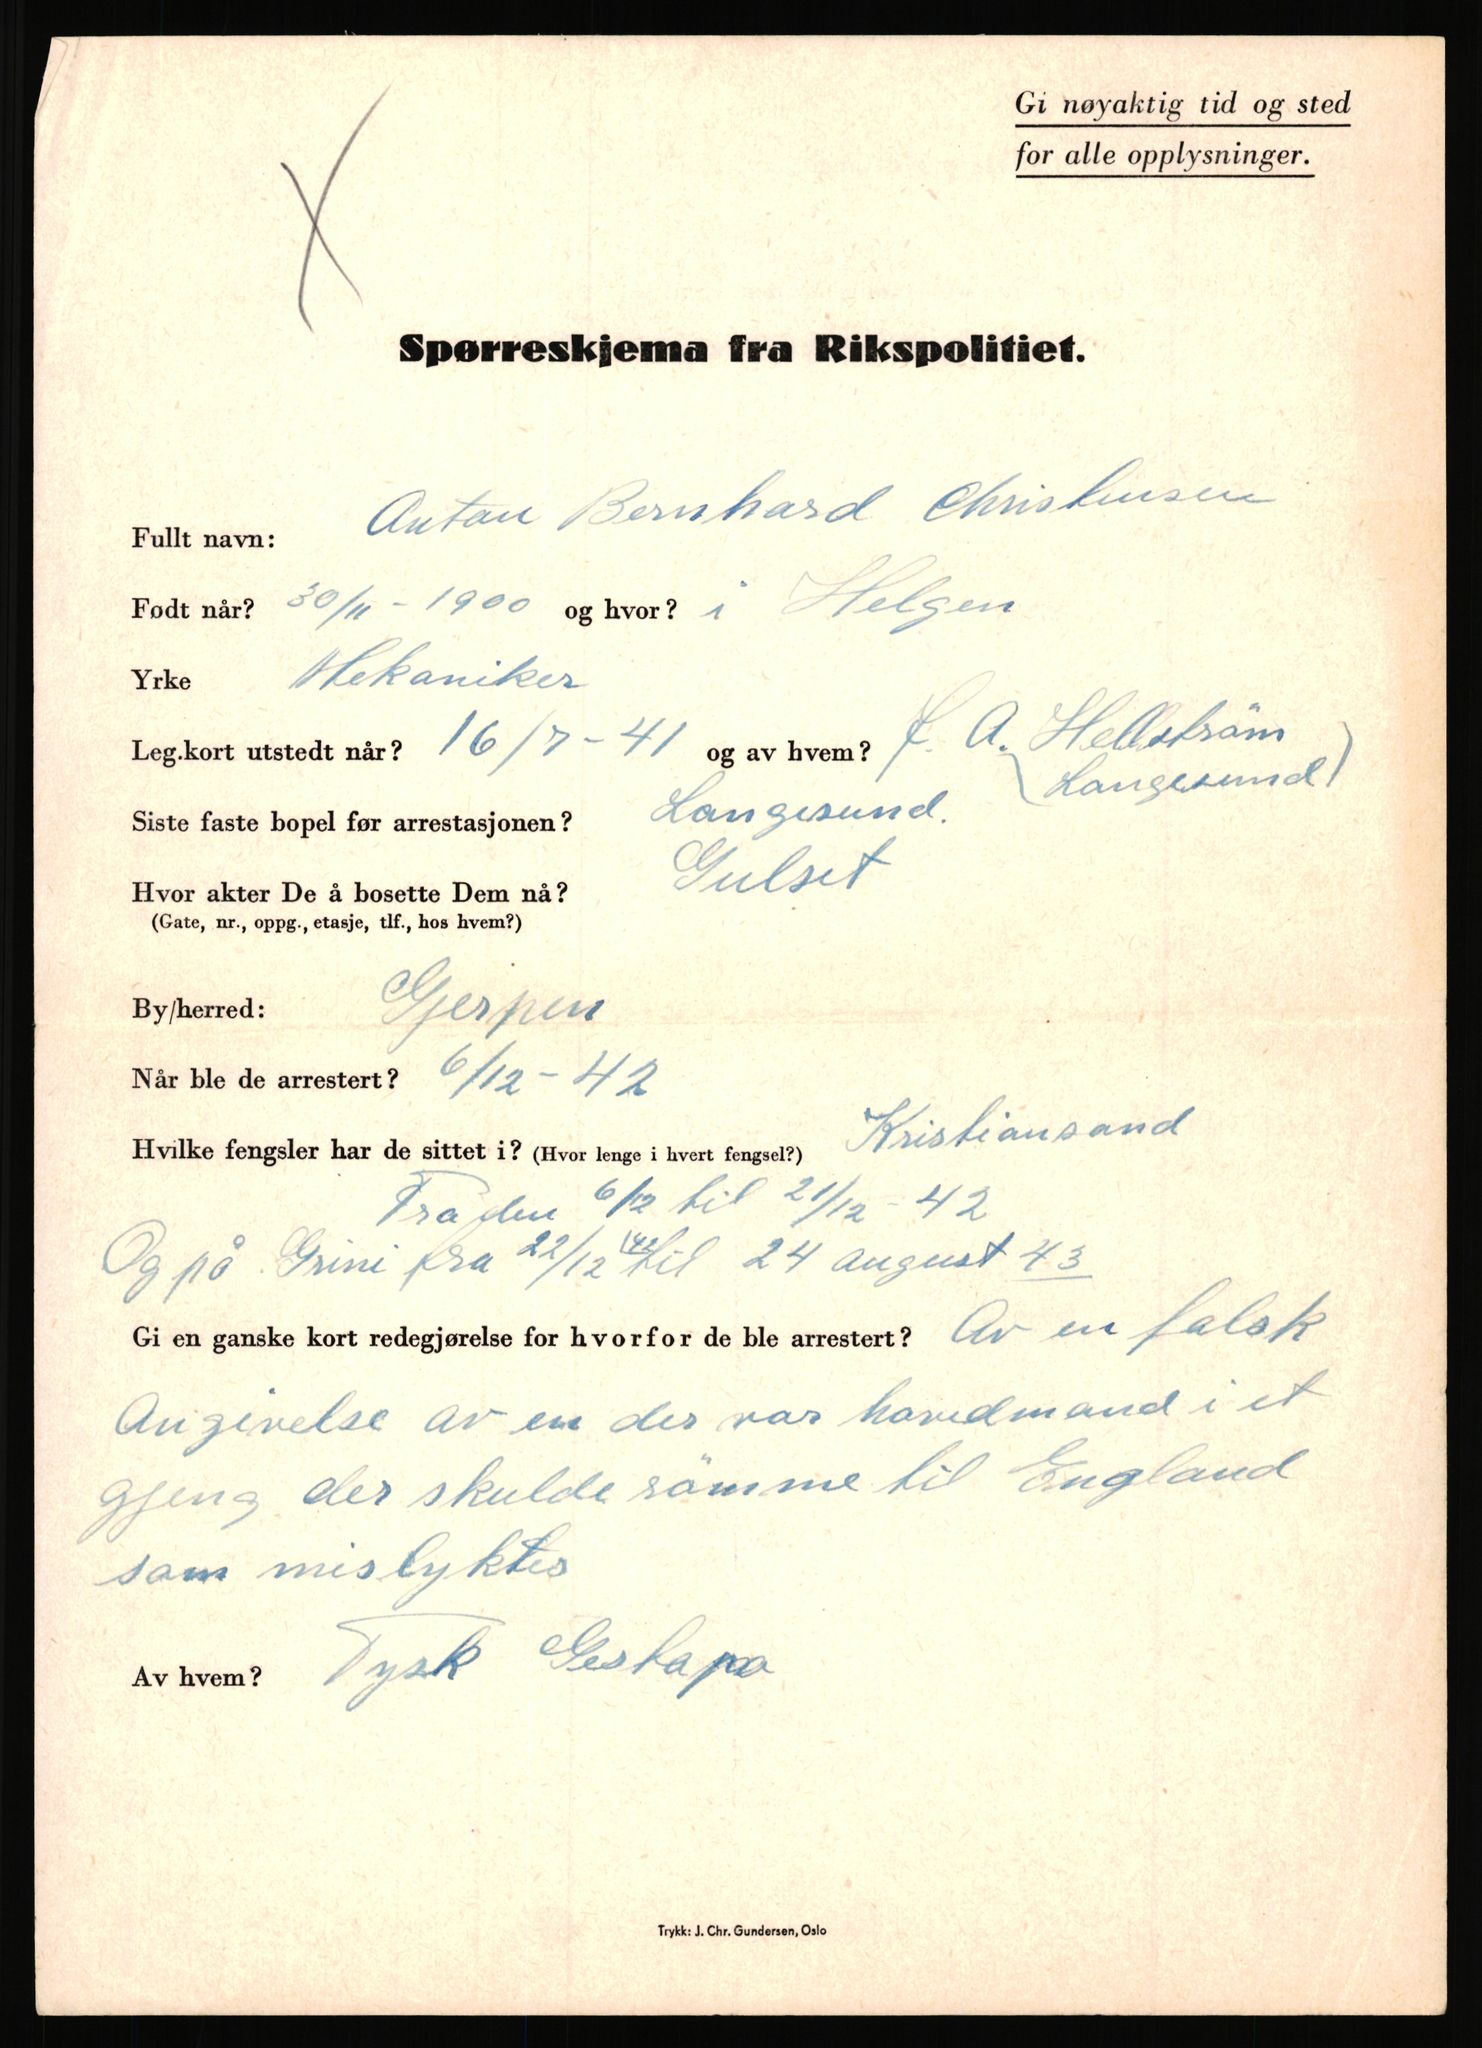 Gi nøyaktig tid og sted
for alle opplysninger.
Spørreskjema fra Rikspolitiet.
Fullt navn: Anton Bernhard Christensen
Født når? 30/11 - 1900 og hvor? i Helgen
Yrke Mekaniker
Leg.kort utstedt når? 16/7 - 41 og av hvem? A. Hellström
(Langesund)
Siste faste bopel før arrestasjonen? Langesund.
Hvor akter De å bosette Dem nå? Gulset
(Gate, nr., oppg., etasje, tlf., hos hvem?)
By/herred: Gjerpen
Når ble de arrestert? 6/12 - 42
Hvilke fengsler har de sittet i? (Hvor lenge i hvert fengsel?) Kristiansand
Fra den 6/12 til 21/12 - 42
Og på Grini fra 22/12 42 til 24 august 43
Gi en ganske kort redegjørelse for hvorfor de ble arrestert? Av en falsk
Angivelse av en der var hovedmand i et
gjeng der skulde römme til England
som mislyktes
Av hvem? Tysk Gestapo
Trykk: J. Chr. Gundersen, Oslo